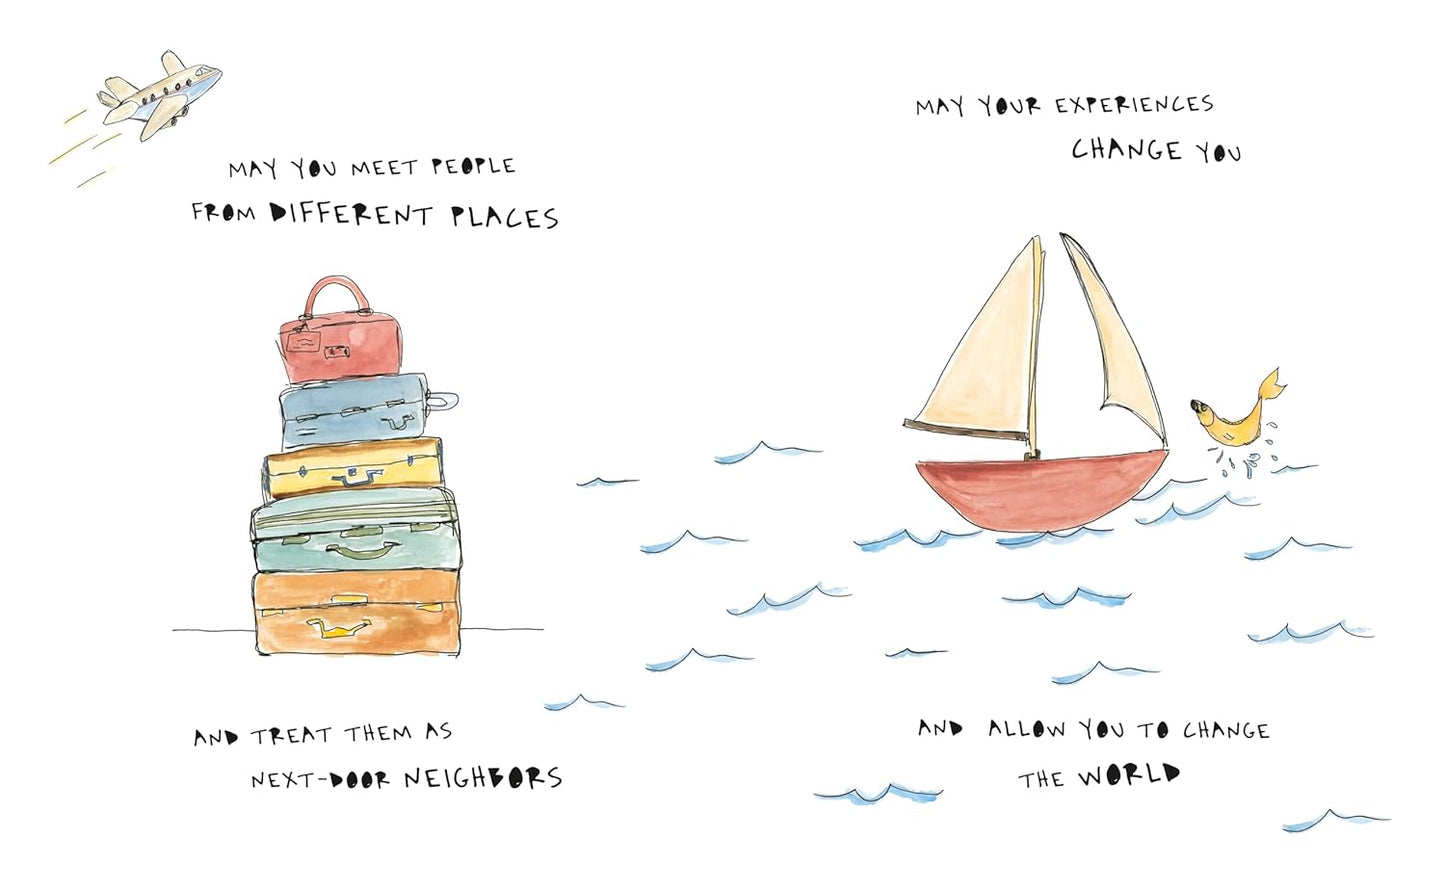 MAY YOU MEET PEOPLE
FROM DIFFERENT PLACES
AND TREAT THEM AS
NEXT-DOOR NEIGHBORS
MAY YOUR EXPERIENCES
CHANGE YOU
AND ALLOW YOU TO CHANGE
THE WORLD